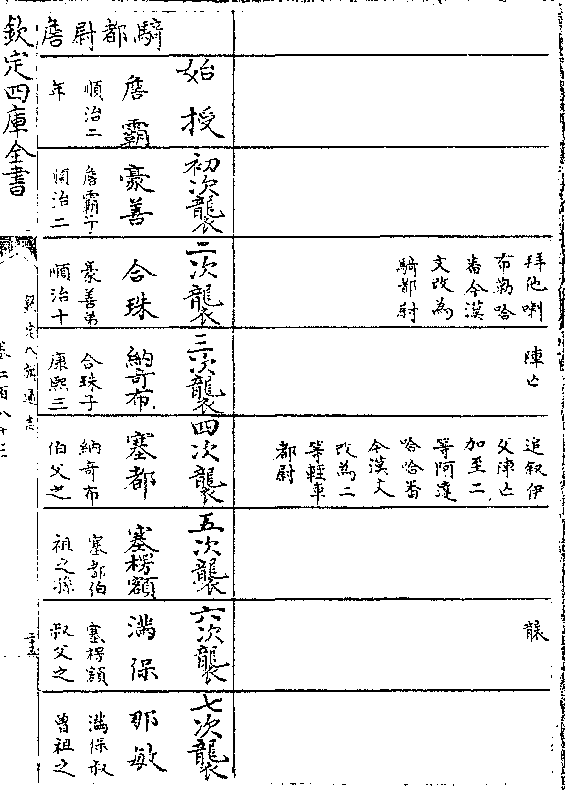 欽定四庫全書
欽定八旗通志
騎都尉詹
始授
詹霸
順治二
年
初次襲
豪善
詹霸子
順治二
二次襲
合珠
豪善弟
順治十
三次襲
納奇布
合珠子
康熙三
四次襲
塞都
納奇布
伯父之
五次襲
塞楞額
塞都伯
祖之孫
六次襲
滿保
塞楞額
叔父之
七次襲
那敏
滿保叔
曾祖之
拜他喇
布勒哈
番今漢
文改為
騎都尉
陣亡
追叙伊
父陣亡
加至二
等阿達
哈哈番
今漢文
改為二
等輕車
都尉